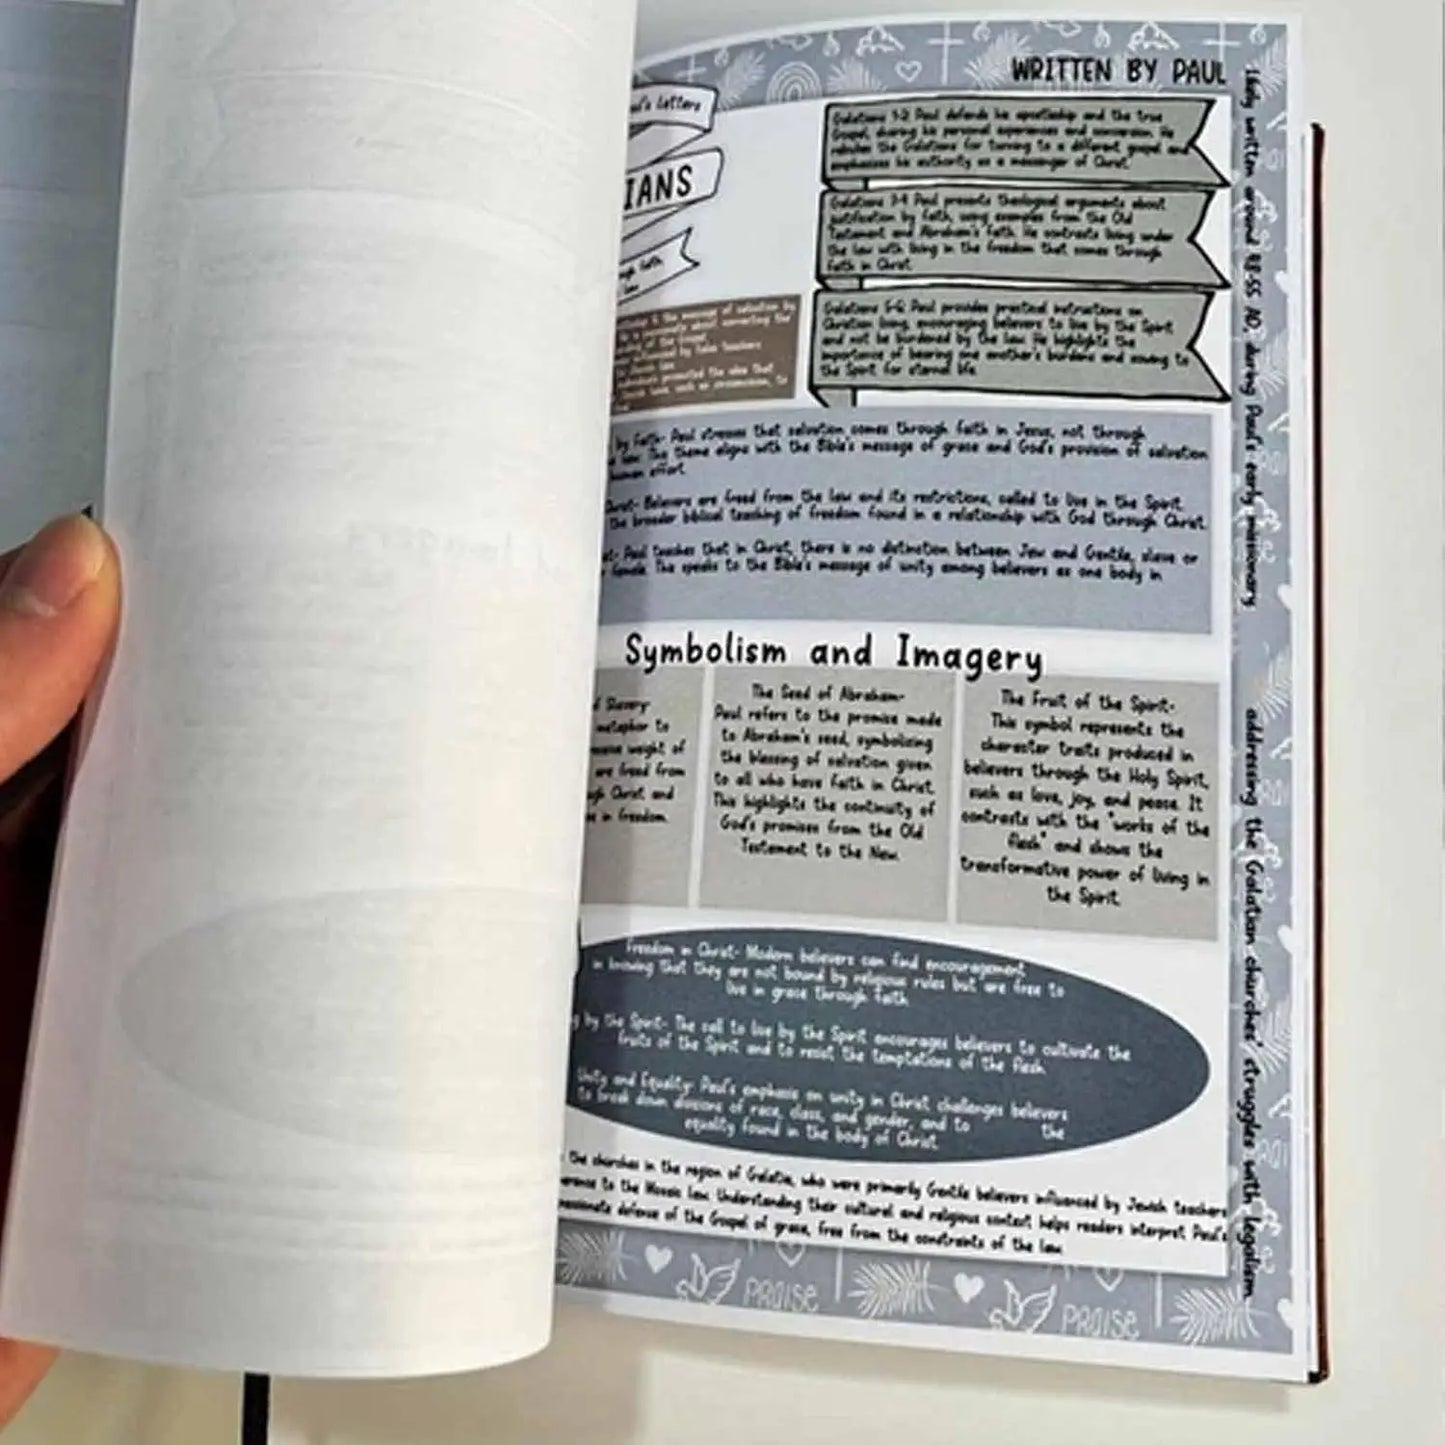 WRITTEN BY PAUL
Paul's Letters
IANS
Galatians 1-2: Paul defends his apostleship and the true
Gospel, sharing his personal experiences and conversion. He
rebukes the Galatians for turning to a different gospel and
emphasizes his authority as a messenger of Christ.
Galatians 3-4: Paul presents theological arguments about
justification by faith, using examples from the Old
Testament and Abraham's faith. He contrasts living under
the law with living in the freedom that comes through
faith in Christ.
Galatians 5-6: Paul provides practical instructions on
Christian living, encouraging believers to live by the Spirit
and not be burdened by the law. He highlights the
importance of bearing one another's burdens and sowing to
the Spirit for eternal life.
the message of salvation by
is passionate about correcting the
of the Gospel
influenced by false teachers
promoted the idea that
such as circumcision, to
by Faith- Paul stresses that salvation comes through faith in Jesus, not through
law. This theme aligns with the Bible's message of grace and God's provision of salvation
human effort.
Christ- Believers are freed from the law and its restrictions, called to live in the Spirit.
the broader biblical teaching of freedom found in a relationship with God through Christ.
Paul teaches that in Christ, there is no distinction between Jew and Gentile, slave or
female. This speaks to the Bible's message of unity among believers as one body in
Symbolism and Imagery
of Slavery-
metaphor to
weight of
are freed from
Christ and
in freedom.
The Seed of Abraham-
Paul refers to the promise made
to Abraham's seed, symbolizing
the blessing of salvation given
to all who have faith in Christ.
This highlights the continuity of
God's promises from the Old
Testament to the New.
The Fruit of the Spirit-
This symbol represents the
character traits produced in
believers through the Holy Spirit,
such as love, joy, and peace. It
contrasts with the "works of the
flesh" and shows the
transformative power of living in
the Spirit.
Freedom in Christ- Modern believers can find encouragement
in knowing that they are not bound by religious rules but are free to
live in grace through faith.
by the Spirit- The call to live by the Spirit encourages believers to cultivate the
fruits of the Spirit and to resist the temptations of the flesh.
Unity and Equality- Paul's emphasis on unity in Christ challenges believers
to break down divisions of race, class, and gender, and to the
equality found in the body of Christ.
the churches in the region of Galatia, who were primarily Gentile believers influenced by Jewish teachers
to the Mosaic law. Understanding their cultural and religious context helps readers interpret Paul's
passionate defense of the Gospel of grace, free from the constraints of the law.
Likely written around 48-55 AD, during Paul's early missionary
addressing the Galatian churches' struggles with legalism.
PRAISE
PRAISE